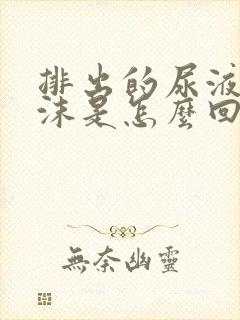 排出的尿液
沫是怎麼回
無奈幽靈